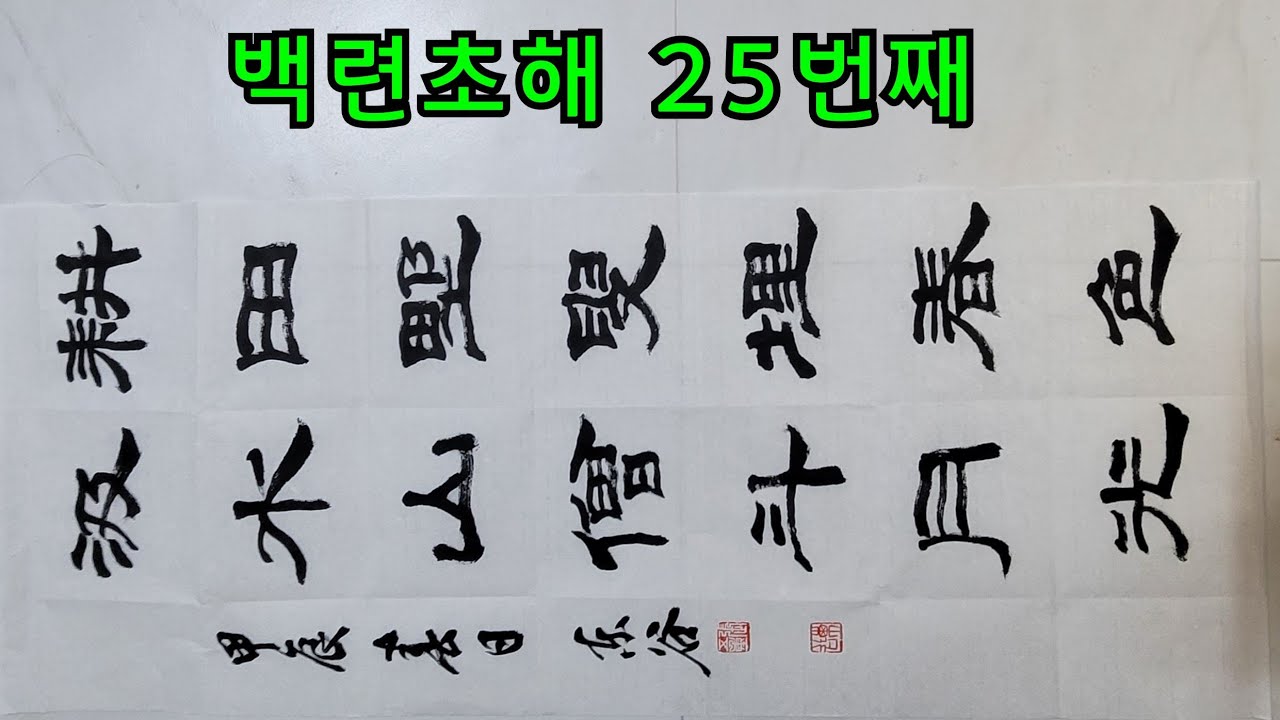 백련초해 25번째
耕田野叟埋春色
汲水山僧斗月光
甲辰春日